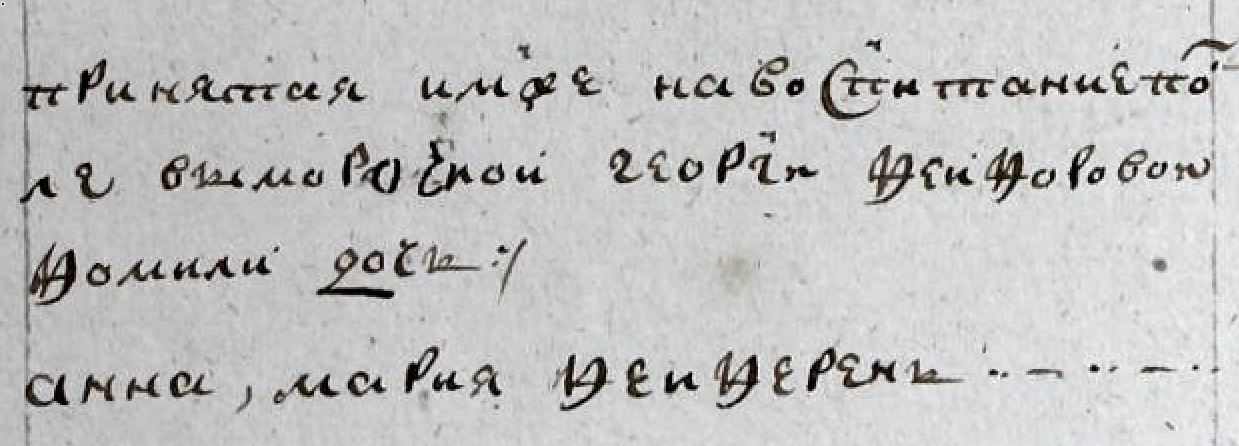 принятая имже на воспитание пос
ле выморочной георги фейфоровою
фомили дочь :/
анна, мария фейферень ..-..-..